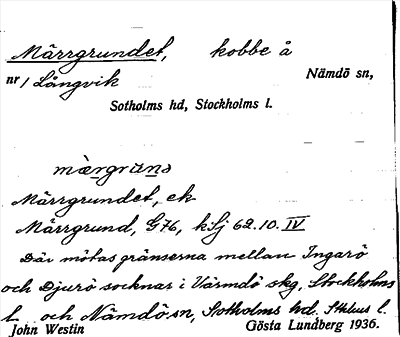 Märrgrundet, kobbe å
nr 1 Långvik Nämdö sn,
Sotholms hd, Stockholms l.
mærgrųnə
Märrgrundet, ek
Märrgrund, G76, kSj 62.10. IV
Där mötas gränserna mellan Ingarö
och Djurö socknar i Värmdö skg, Stockholms
l. och Nämdö sn, Sotholms hd. Sthlms l.
John Westin Gösta Lundberg 1936.